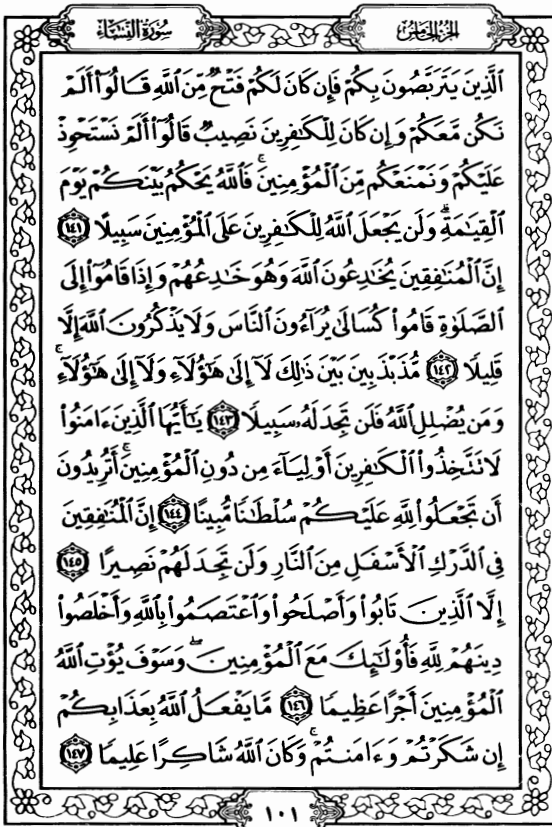 الجزء الخامس
سورة النساء
ٱلَّذِينَ يَتَرَبَّصُونَ بِكُمۡ فَإِن كَانَ لَكُمۡ فَتۡحٞ مِّنَ ٱللَّهِ قَالُوٓاْ أَلَمۡ
نَكُن مَّعَكُمۡ وَإِن كَانَ لِلۡكَٰفِرِينَ نَصِيبٞ قَالُوٓاْ أَلَمۡ نَسۡتَحۡوِذۡ
عَلَيۡكُمۡ وَنَمۡنَعۡكُم مِّنَ ٱلۡمُؤۡمِنِينَۚ فَٱللَّهُ يَحۡكُمُ بَيۡنَكُمۡ يَوۡمَ
ٱلۡقِيَٰمَةِۗ وَلَن يَجۡعَلَ ٱللَّهُ لِلۡكَٰفِرِينَ عَلَى ٱلۡمُؤۡمِنِينَ سَبِيلًا ١٤١
إِنَّ ٱلۡمُنَٰفِقِينَ يُخَٰدِعُونَ ٱللَّهَ وَهُوَ خَٰدِعُهُمۡ وَإِذَا قَامُوٓاْ إِلَى
ٱلصَّلَوٰةِ قَامُواْ كُسَالَىٰ يُرَآءُونَ ٱلنَّاسَ وَلَا يَذۡكُرُونَ ٱللَّهَ إِلَّا
قَلِيلٗا ١٤٢ مُّذَبۡذَبِينَ بَيۡنَ ذَٰلِكَ لَآ إِلَىٰ هَٰٓؤُلَآءِ وَلَآ إِلَىٰ هَٰٓؤُلَآءِۚ
وَمَن يُضۡلِلِ ٱللَّهُ فَلَن تَجِدَ لَهُۥ سَبِيلٗا ١٤٣ يَٰٓأَيُّهَا ٱلَّذِينَ ءَامَنُواْ
لَا تَتَّخِذُواْ ٱلۡكَٰفِرِينَ أَوۡلِيَآءَ مِن دُونِ ٱلۡمُؤۡمِنِينَۚ أَتُرِيدُونَ
أَن تَجۡعَلُواْ لِلَّهِ عَلَيۡكُمۡ سُلۡطَٰنٗا مُّبِينًا ١٤٤ إِنَّ ٱلۡمُنَٰفِقِينَ
فِي ٱلدَّرۡكِ ٱلۡأَسۡفَلِ مِنَ ٱلنَّارِ وَلَن تَجِدَ لَهُمۡ نَصِيرًا ١٤٥
إِلَّا ٱلَّذِينَ تَابُواْ وَأَصۡلَحُواْ وَٱعۡتَصَمُواْ بِٱللَّهِ وَأَخۡلَصُواْ
دِينَهُمۡ لِلَّهِ فَأُوْلَٰٓئِكَ مَعَ ٱلۡمُؤۡمِنِينَۖ وَسَوۡفَ يُؤۡتِ ٱللَّهُ
ٱلۡمُؤۡمِنِينَ أَجۡرًا عَظِيمٗا ١٤٦ مَّا يَفۡعَلُ ٱللَّهُ بِعَذَابِكُمۡ
إِن شَكَرۡتُمۡ وَءَامَنتُمۡۚ وَكَانَ ٱللَّهُ شَاكِرًا عَلِيمٗا ١٤٧
١٠١